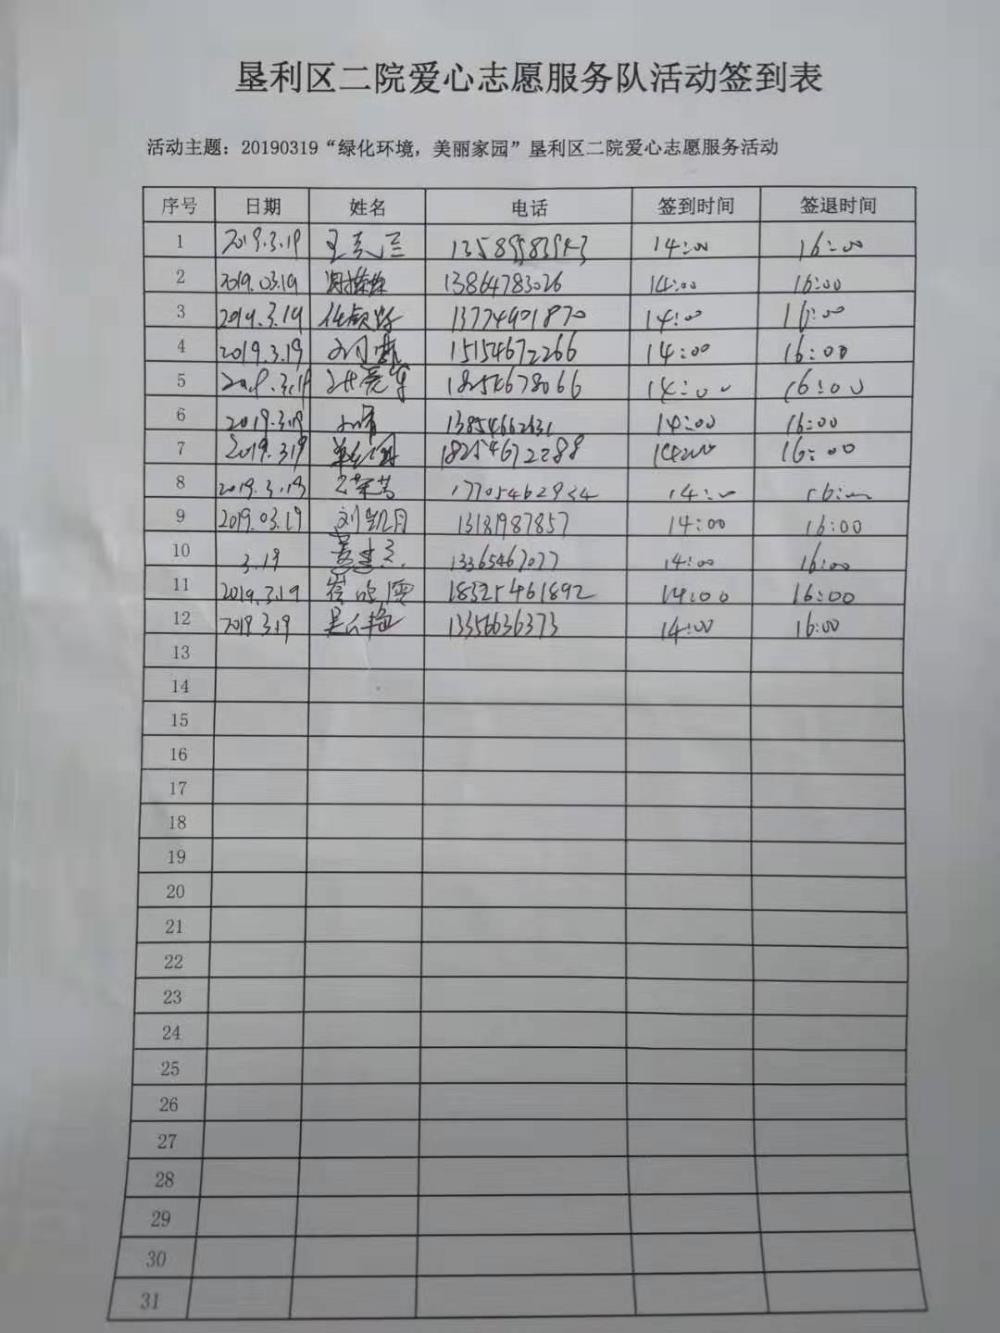 垦利区二院爱心志愿服务队活动签到表
活动主题：20190319“绿化环境，美丽家园”垦利区二院爱心志愿服务活动
序号 日期 姓名 电话 签到时间 签退时间
1 2019.3.19 14:00 16:00
2 2019.03.19 13864783026 14:00 16:00
3 2019.3.19 13774901870 14:00 16:00
4 2019.3.19 15154672266 14:00 16:00
5 2019.3.19 18254678066 14:00 16:00
6 2019.3.19 13854662631 14:00 16:00
7 2019.319 18254672288 14:00 16:00
8 2019.3.19 17705462934 14:00 16:00
9 2019.03.19 刘凯月 13181987857 14:00 16:00
10 3.19 13365467077 14:00 16:00
11 2019.3.19 18325461892 14:00 16:00
12 2019.3.19 13356636373 14:00 16:00
13
14
15
16
17
18
19
20
21
22
23
24
25
26
27
28
29
30
31